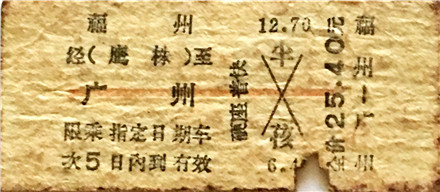 福州
经(鹰株)至
广州
限乘指定日期车
次5日内到有效
硬座普快
12.70
半
孩
6.4
全价25.40元
福州
广州